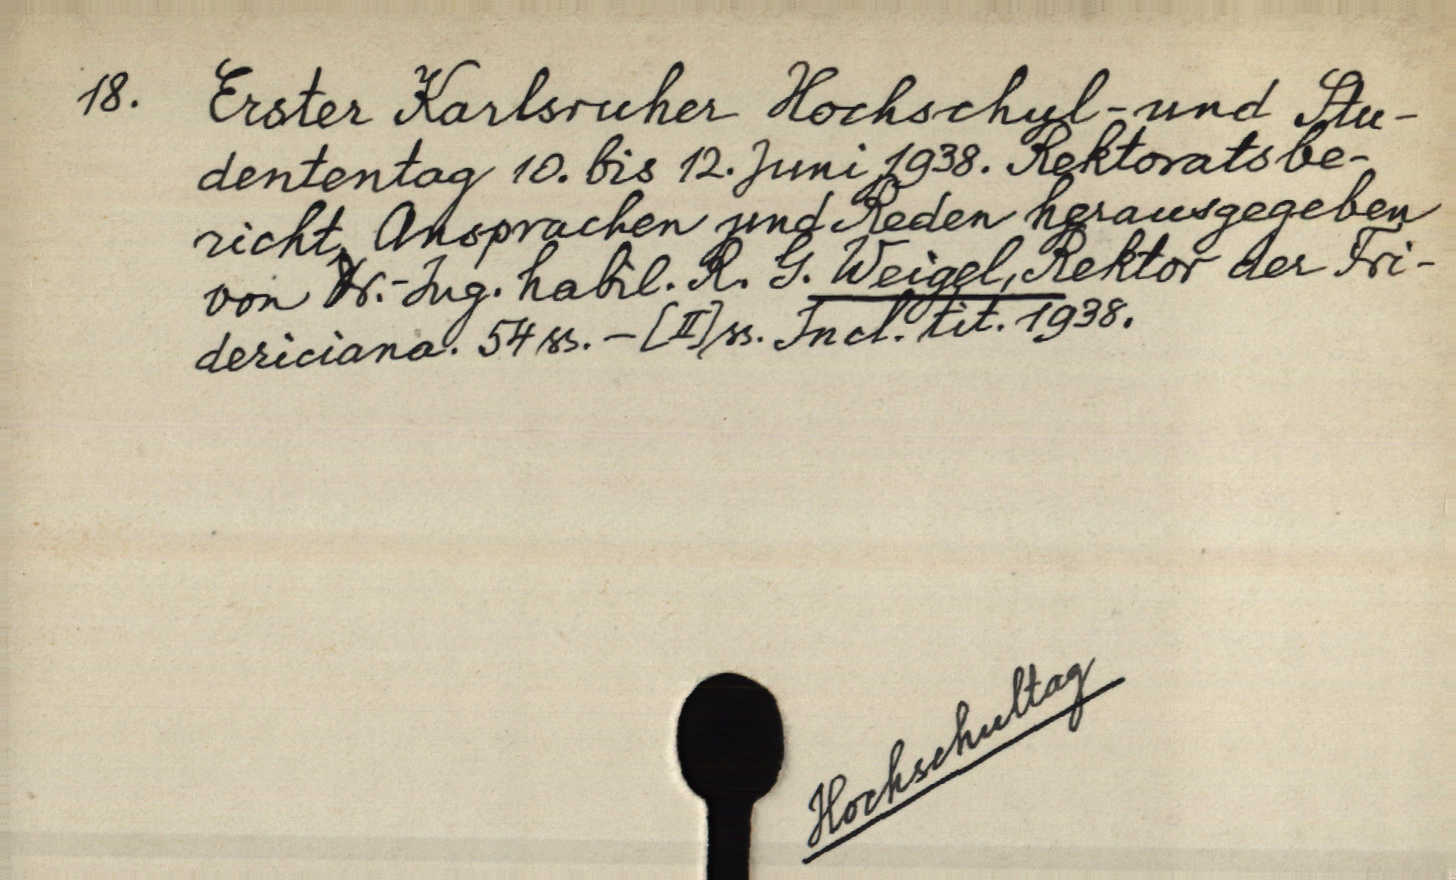 18. Erster Karlsruher Hochschul- und Stu-
dententag 10. bis 12. Juni 1938. Rektoratsbe-
richt, Ansprachen und Reden herausgegeben
von Dr.-Ing. habil. R. G. Weigel, Rektor der Fri-
dericiana. 54 ss. – [II] ss. Incl. tit. 1938.
Hochschultag